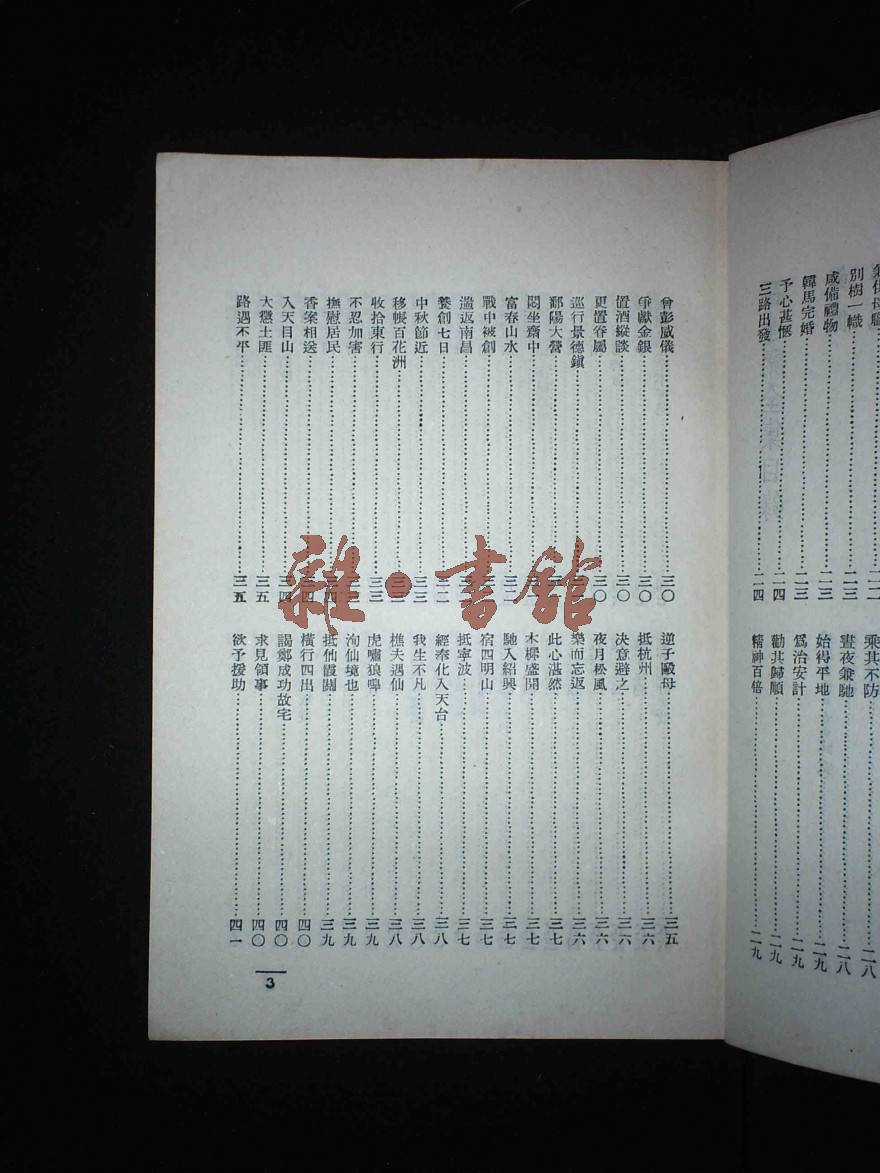 別樹一幟……二三
咸備禮物……二三
韓馬完婚……二三
予心甚愜……二四
三路出發……二四
乘其不防……二八
晝夜兼馳……二八
始得平地……二九
爲治安計……二九
勸其歸順……二九
精神百倍……二九
曾彭威儀……三〇
爭獻金銀……三〇
置酒縱談……三〇
更置眷屬……三〇
巡行景德鎮……
鄱陽大營……
悶坐齋中……
富春山水……三二
戰中被創……
遄返南昌……
養創七日……三二
中秋節近……三三
移帳百花洲……三三
收拾東行……三三
不忍加害……
撫慰居民……三四
香案相送……三四
入天目山……三四
大懲土匪……三五
路遇不平……三五
逆子毆母……三五
抵杭州……三六
決意避之……三六
夜月松風……三六
樂而忘返……三六
此心湛然……三七
木樨盛開……三七
馳入紹興……三七
宿四明山……三七
抵寧波……三七
經奉化入天台……三八
我生不凡……三八
樵夫遇仙……三八
虎嘯狼嗥……三九
洵仙境也……三九
抵仙霞關……三九
橫行四出……四〇
謁鄭成功故宅……四〇
求見領事……四〇
欲予援助……四一
3
雜·書館